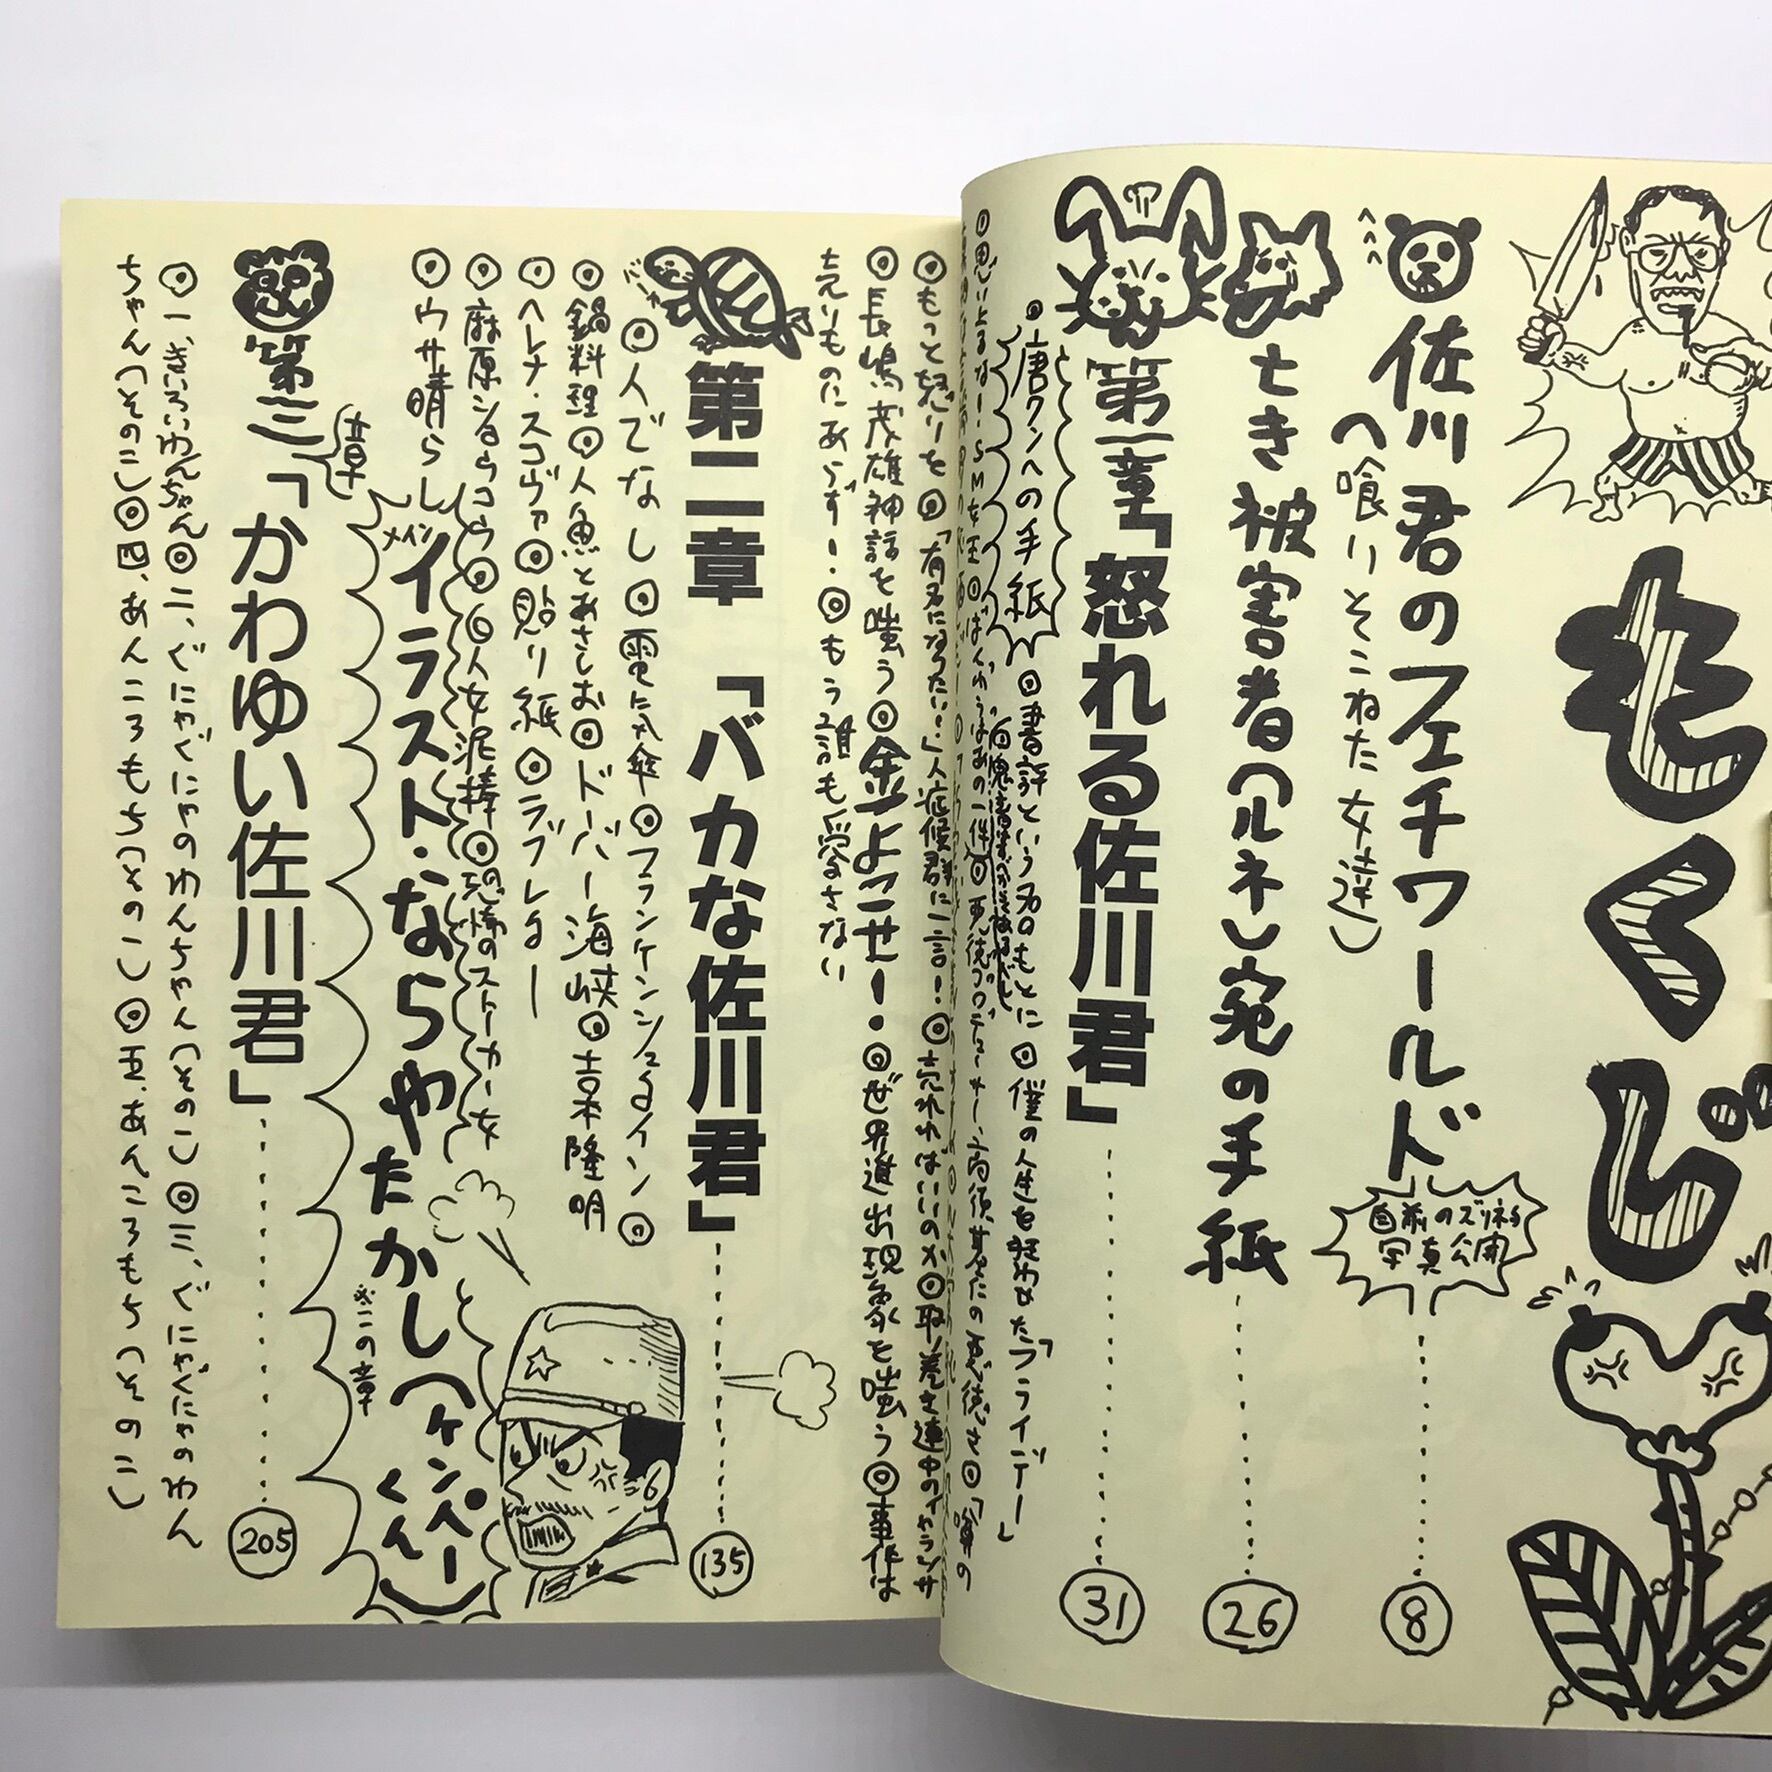 もくじ
佐川君のフェチワールド
(喰りそこねた女達)
自前のズリネタ
写真公開
8
亡き被害者(ルネ)宛の手紙
26
第一章「怒れる佐川君」
31
唐クンへの手紙
◎書評という名のもとに◎僕の人生を狂わせた「フライデー」
◎もっと怒りを◎「有名になったな…」人症候群に一言!◎売れればいいのか◎取り巻き連中の
◎長嶋茂雄神話を嗤う◎金よこせ!◎ぜ界進出現象を嗤う◎事件は
売りものにあらず!◎もう誰も愛さない
第二章「バカな佐川君」
135
◎人でなし◎電気傘◎フランケンシュタイン◎
鍋料理◎人魚とあさしお◎ドーバー海峡◎幸福隆明
◎ヘレナ・スコヴァ◎貼り紙◎ラブレター
◎麻原ショウコウ◎6人女泥棒◎恐怖のストーカー女
◎ウサ晴らし
メイン
イラスト・ならやたかし(ケンペーくん)
※二の章
第三章「かわゆい佐川君」
205
◎一、きいろいわんちゃん◎二、ぐにゃぐにゃのわんちゃん(その一)◎三、ぐにゃぐにゃのわん
ちゃん(その二)◎四、あんころもち(その一)◎五、あんころもち(その二)